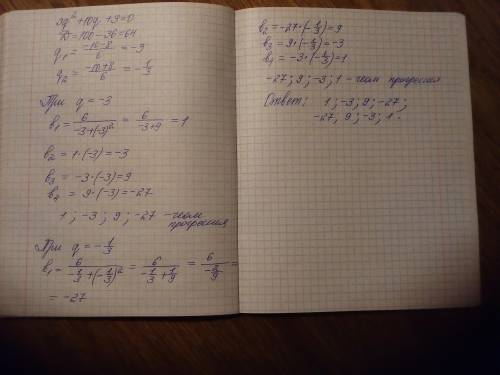 3q² + 10q + 3 = 0
D = 100 - 36 = 64
q₁ = (-10-8)/6 = -3
q₂ = (-10+8)/6 = -1/3
При q = -3
b₁ = 6/(-3+(-3)²) = 6/(-3+9) = 1
b₂ = 1·(-3) = -3
b₃ = -3·(-3) = 9
b₄ = 9·(-3) = -27
1; -3; 9; -27 - геом
прогрессия
При q = -1/3
b₁ = 6/(-1/3+(-1/3)²) = 6/(-1/3+1/9) = 6/(-2/9) =
= -27
b₂ = -27·(-1/3) = 9
b₃ = 9·(-1/3) = -3
b₁ = -3·(-1/3) = 1
-27; 9; -3; 1 - геом прогрессия
Ответ: 1; -3; 9; -27;
-27; 9; -3; 1.